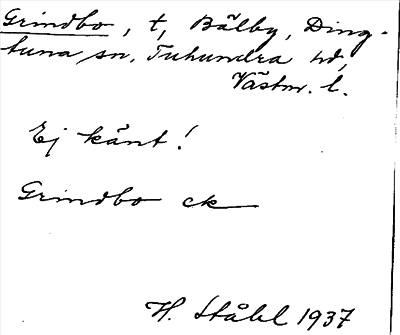 Grindbo, t, Bälby, Ding-
tuna sn, Tuhundra hd,
Västm. l.
Ej känt!
Grindbo ck
H. Ståhl 1937